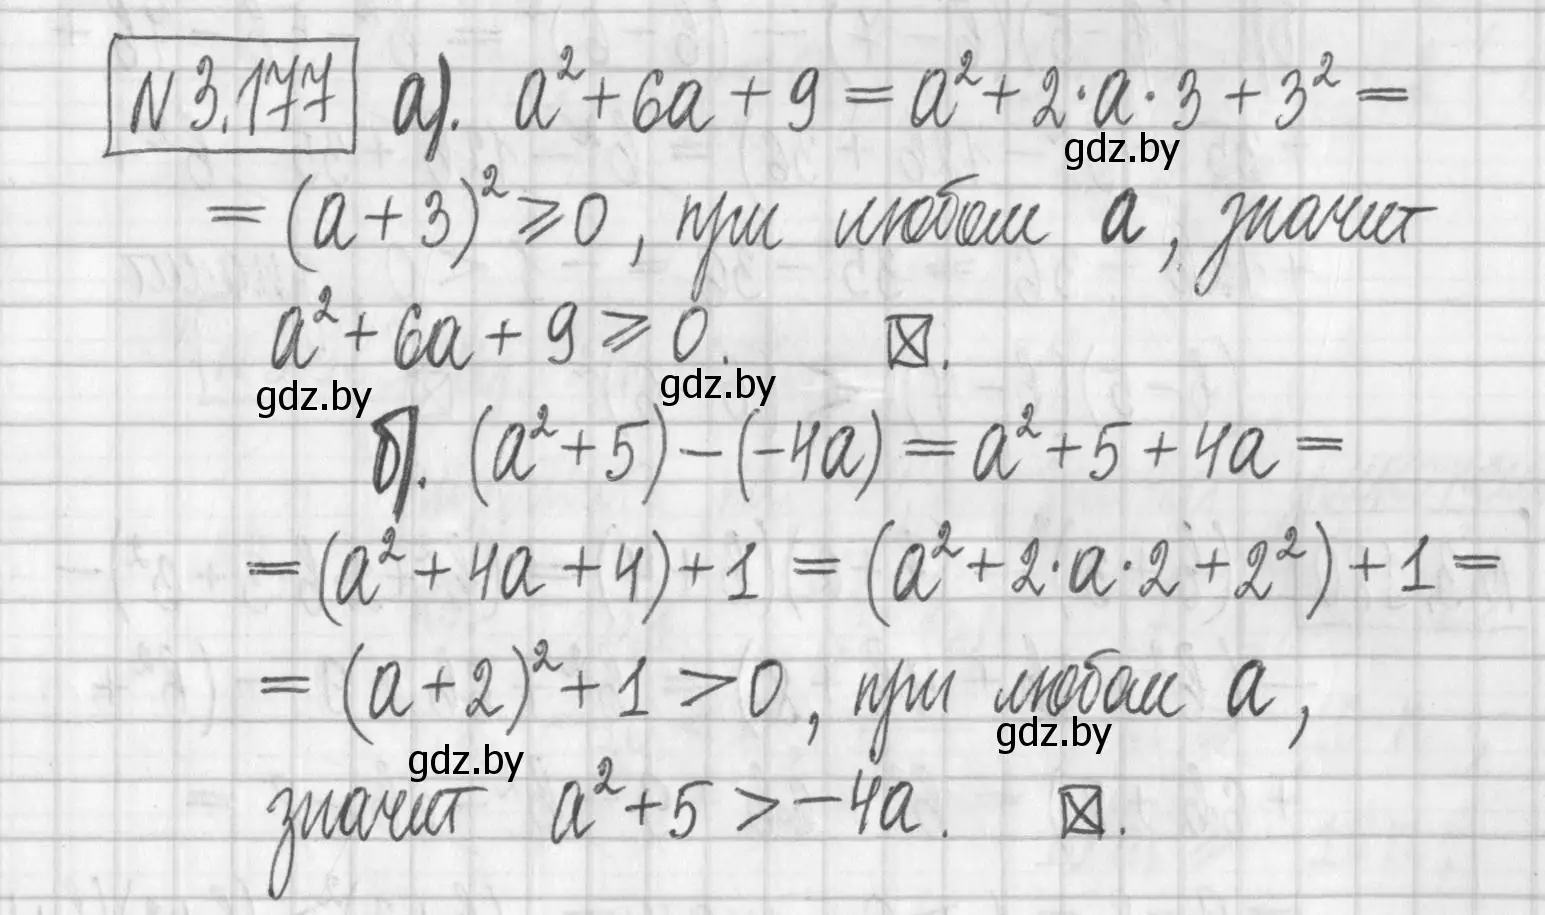 N 3.177 а). a²+6a+9=a²+2·a·3+3²=
gdz.by
=(a+3)²⩾0, при любом a, значит
a²+6a+9⩾0. ☒.
gdz.by gdz.by
б). (a²+5)-(-4a)=a²+5+4a=
=(a²+4a+4)+1=(a²+2·a·2+2²)+1=
=(a+2)²+1>0, при любом a,
gdz.by gdz.by
значит a²+5>-4a. ☒.